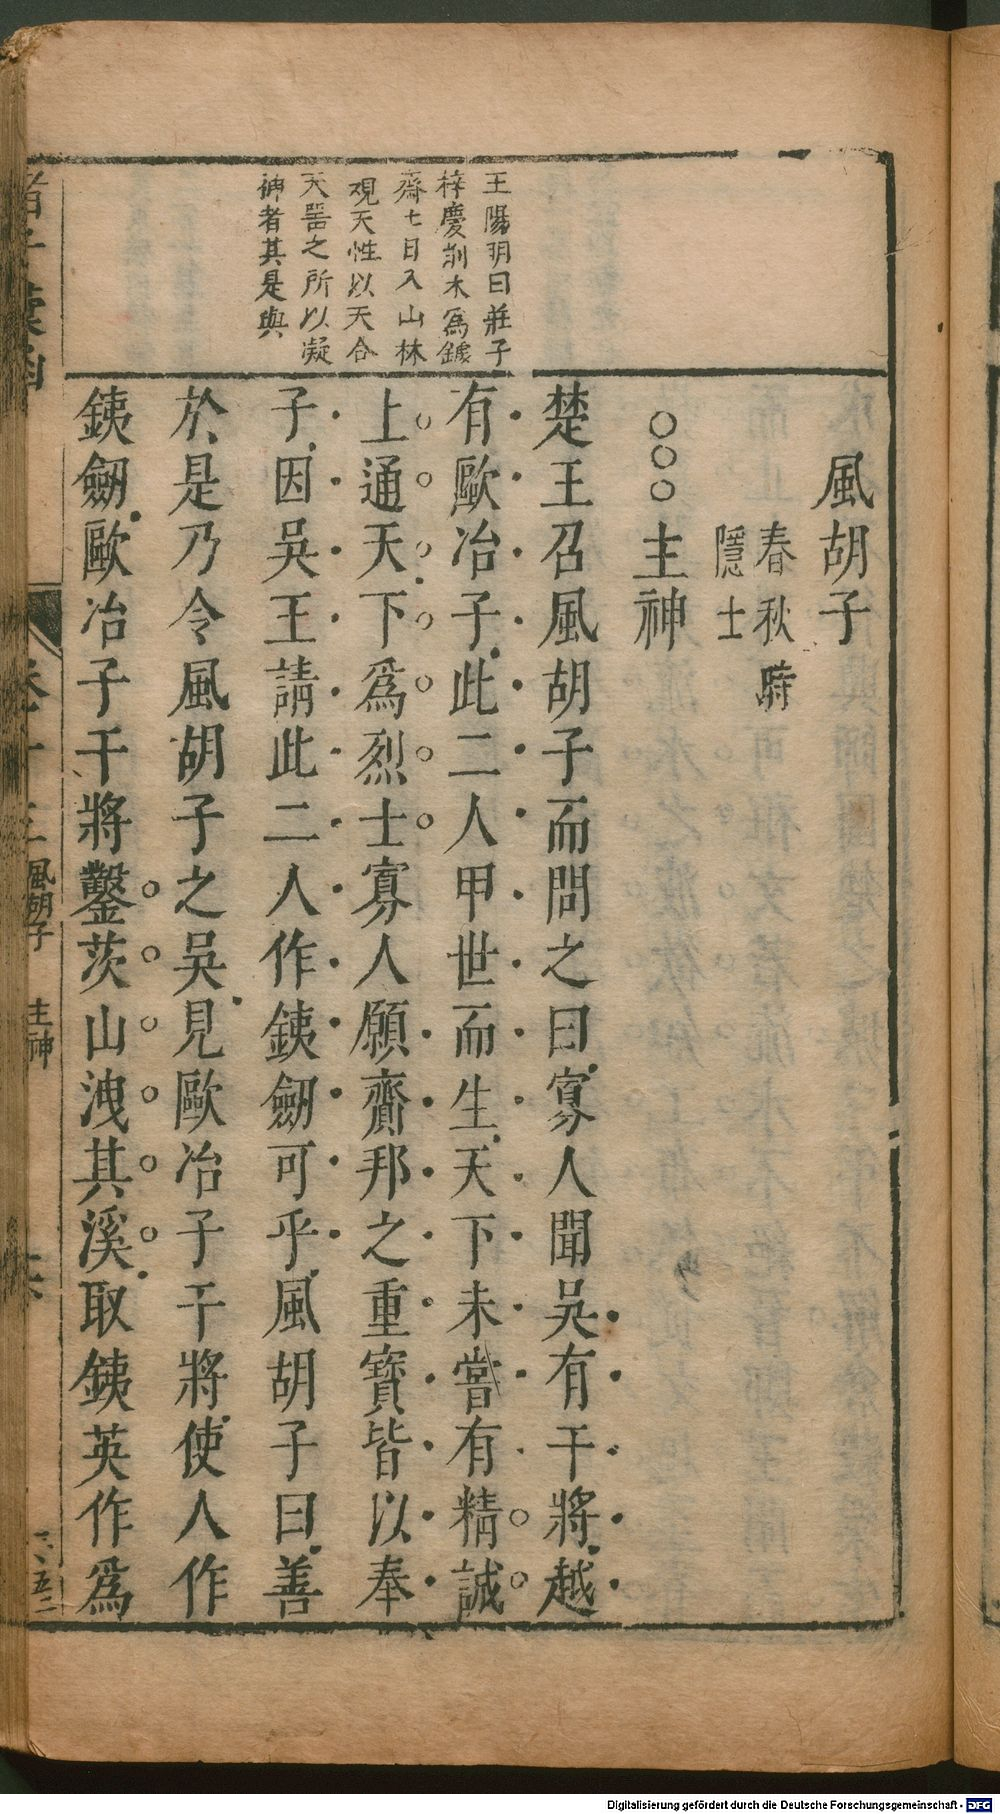 王陽明曰莊子
梓慶削木爲鐻
齋七日入山林
観天性以天合
天噐之所以凝
神者其是與
風胡子
春秋時
隱士
○○○主神
楚王召風胡子而問之曰寡人聞吳有干將越
有歐冶子此二人甲世而生天下未嘗有精誠
上通天下爲烈士寡人願齎邦之重寳皆以奉
子因吳王請此二人作銕劒可乎風胡子曰善
於是乃令風胡子之吳見歐冶子干將使人作
銕劒歐冶子干將鑿茨山洩其溪取銕英作爲
風胡子
主神
Digitalisierung gefördert durch die Deutsche Forschungsgemeinschaft - DFG